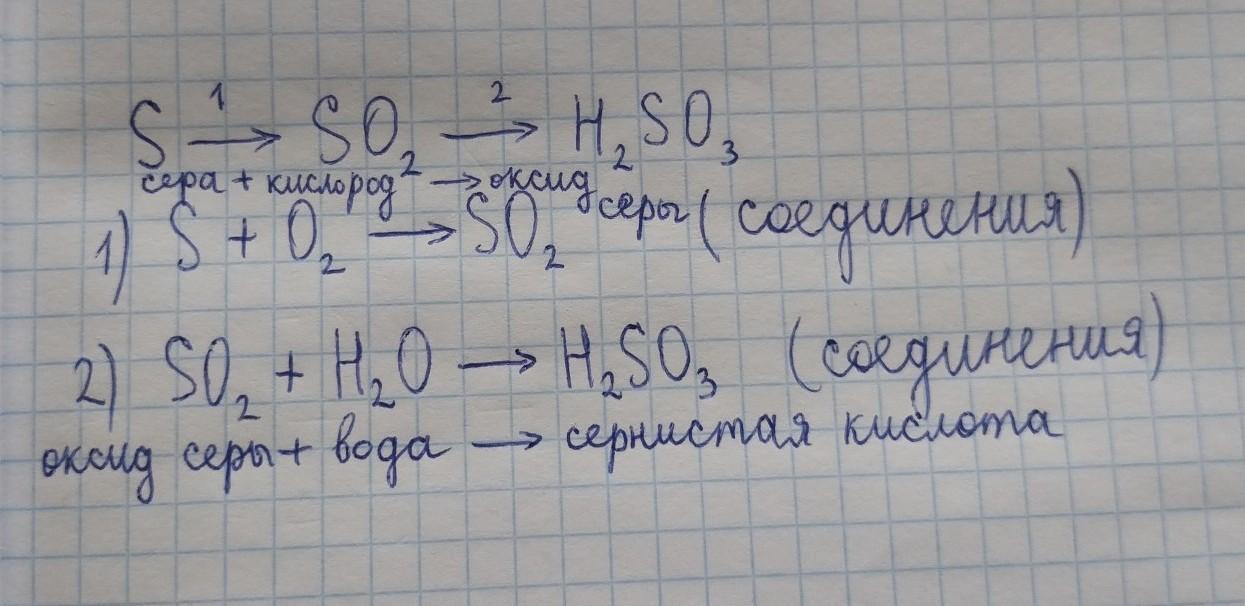 S 1→ SO₂ 2→ H₂SO₃
сера + кислород → оксид серы
1) S + O₂ → SO₂ (соединения)
2) SO₂ + H₂O → H₂SO₃ (соединения)
оксид серы + вода → сернистая кислота